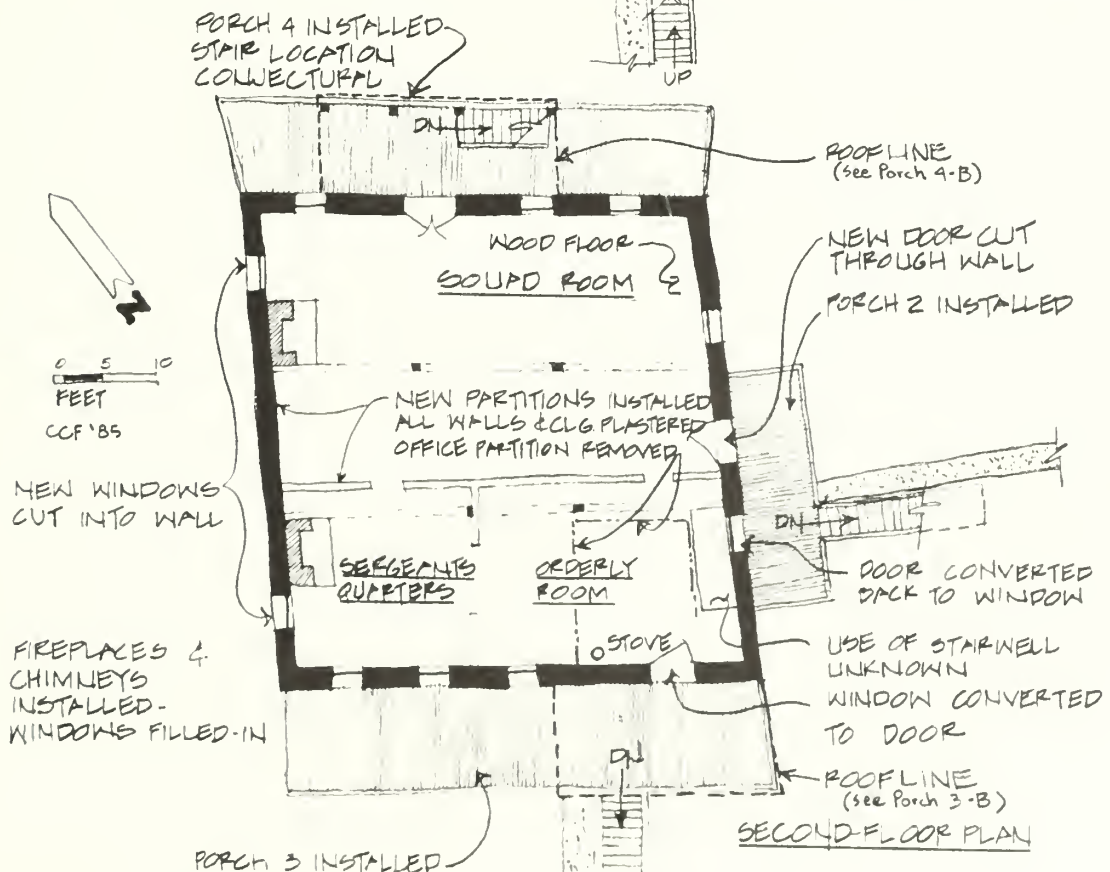 PORCH 4 INSTALLED
STAIR LOCATION
CONJECTURAL
UP
DN
ROOFLINE
(see Porch 4-B)
WOOD FLOOR
SQUAD ROOM
NEW DOOR CUT
THROUGH WALL
PORCH 2 INSTALLED
N
0 5 10
FEET
CCF '85
NEW PARTITIONS INSTALLED
ALL WALLS & CLG. PLASTERED
OFFICE PARTITION REMOVED
NEW WINDOWS
CUT INTO WALL
DN
SERGEANTS
QUARTERS
ORDERLY
ROOM
DOOR CONVERTED
BACK TO WINDOW
STOVE
USE OF STAIRWELL
UNKNOWN
FIREPLACES &
CHIMNEYS
INSTALLED-
WINDOWS FILLED-IN
WINDOW CONVERTED
TO DOOR
DN
ROOFLINE
(see Porch 3-B)
SECOND-FLOOR PLAN
PORCH 3 INSTALLED